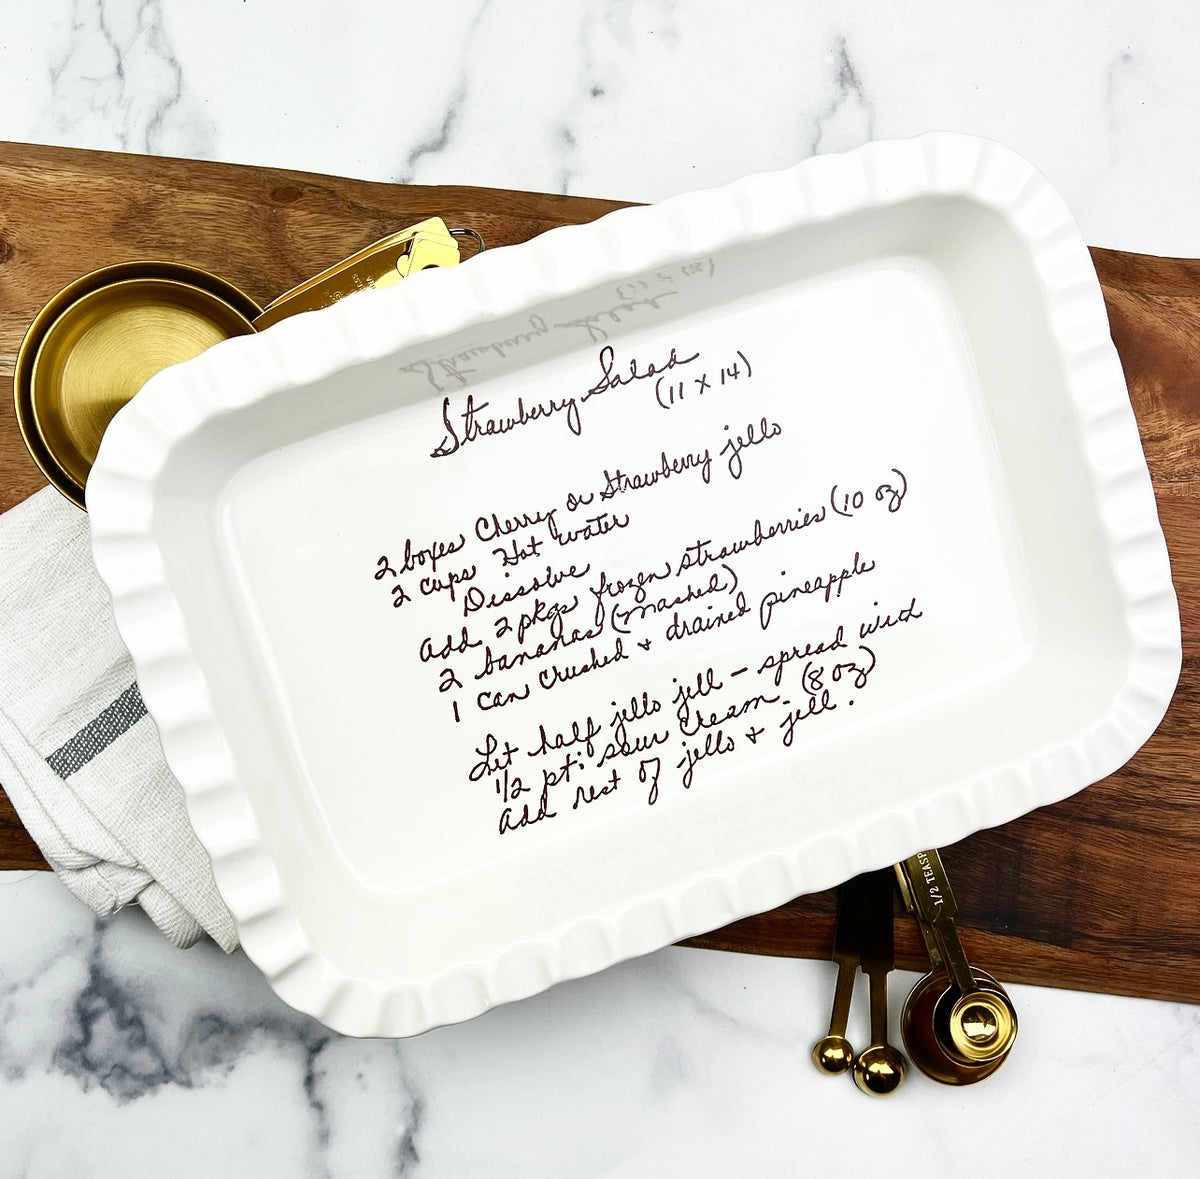 Strawberry Salad
(11 x 14)
2 boxes Cherry or Strawberry jello
2 cups Hot water
Dissolve
Add 2 pkgs frozen strawberries (10 oz)
2 bananas (mashed)
1 can crushed + drained pineapple
Let half jello jell - spread with
1/2 pt. sour cream (8 oz)
Add rest of jello + jell.
1/2 TEASP